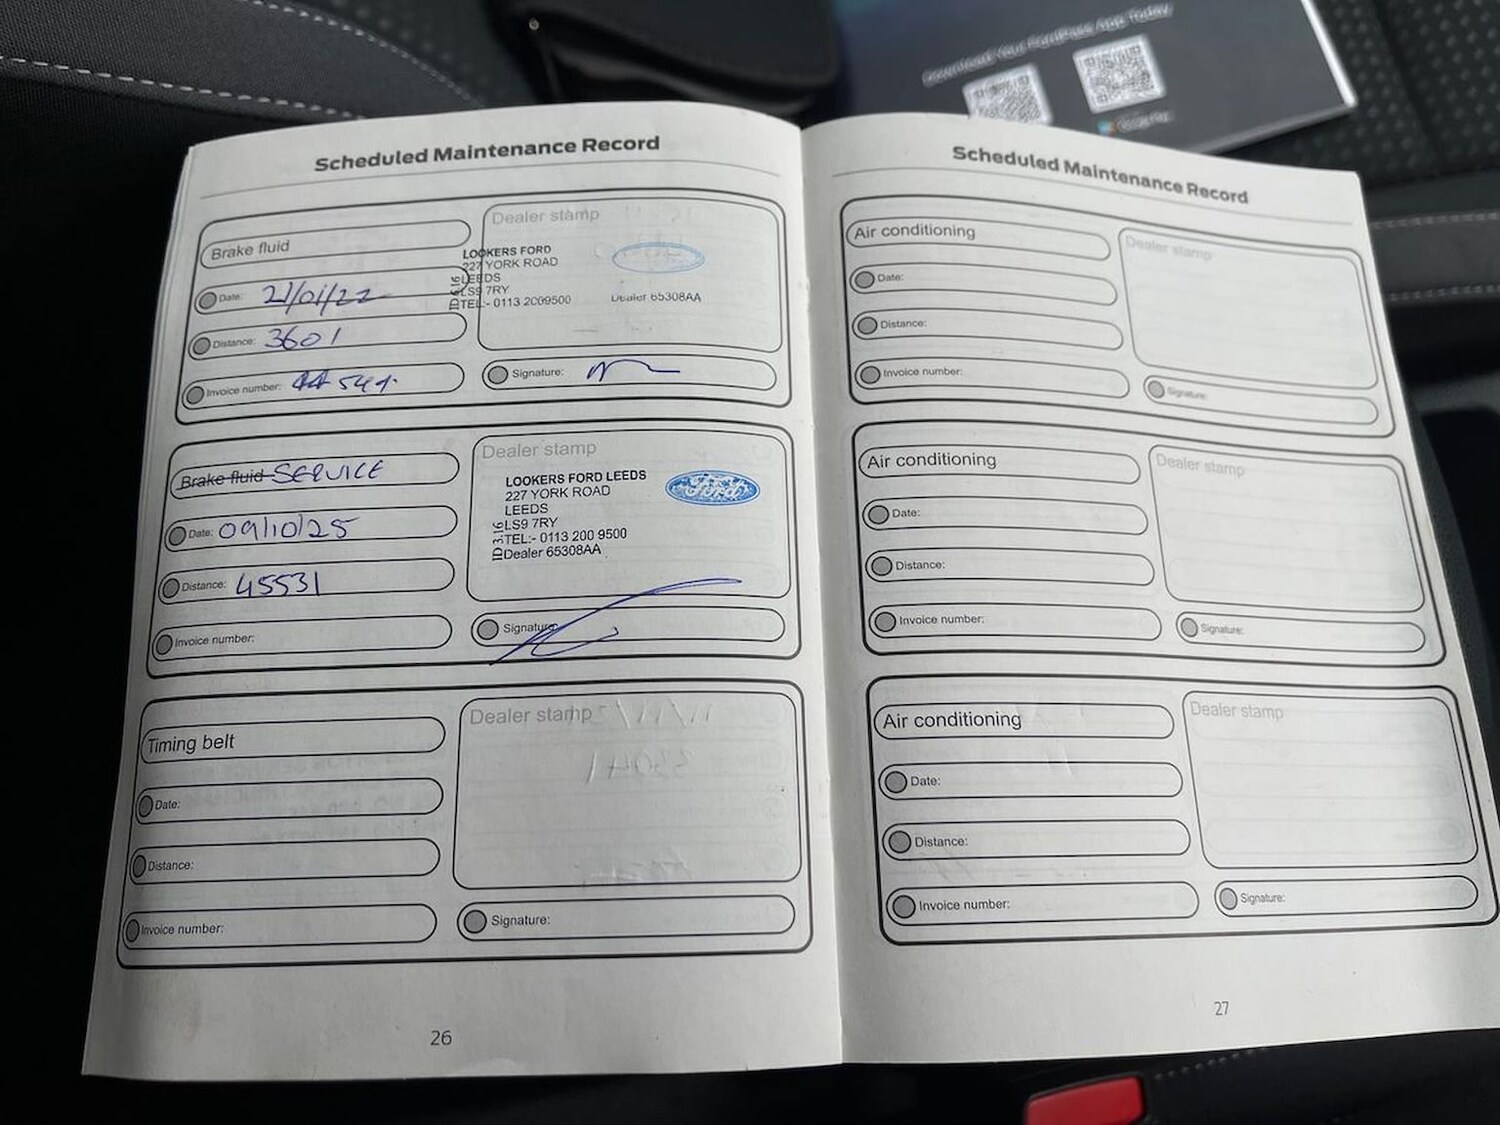 Download Your FordPass App Today
Scheduled Maintenance Record
Brake fluid
Date: 21/01/22
Distance: 3601
Invoice number:
Dealer stamp
LOOKERS FORD
227 YORK ROAD
LEEDS
LS9 7RY
TEL:- 0113 2009500
Dealer 65308AA
Signature:
Brake fluid SERVICE
Date: 09/10/25
Distance: 45531
Invoice number:
Dealer stamp
LOOKERS FORD LEEDS
227 YORK ROAD
LEEDS
LS9 7RY
TEL:- 0113 200 9500
Dealer 65308AA
Ford
Signature:
Timing belt
Date:
Distance:
Invoice number:
Dealer stamp
Signature:
26
Scheduled Maintenance Record
Air conditioning
Date:
Distance:
Invoice number:
Dealer stamp
Signature:
Air conditioning
Date:
Distance:
Invoice number:
Dealer stamp
Signature:
Air conditioning
Date:
Distance:
Invoice number:
Dealer stamp
Signature:
27